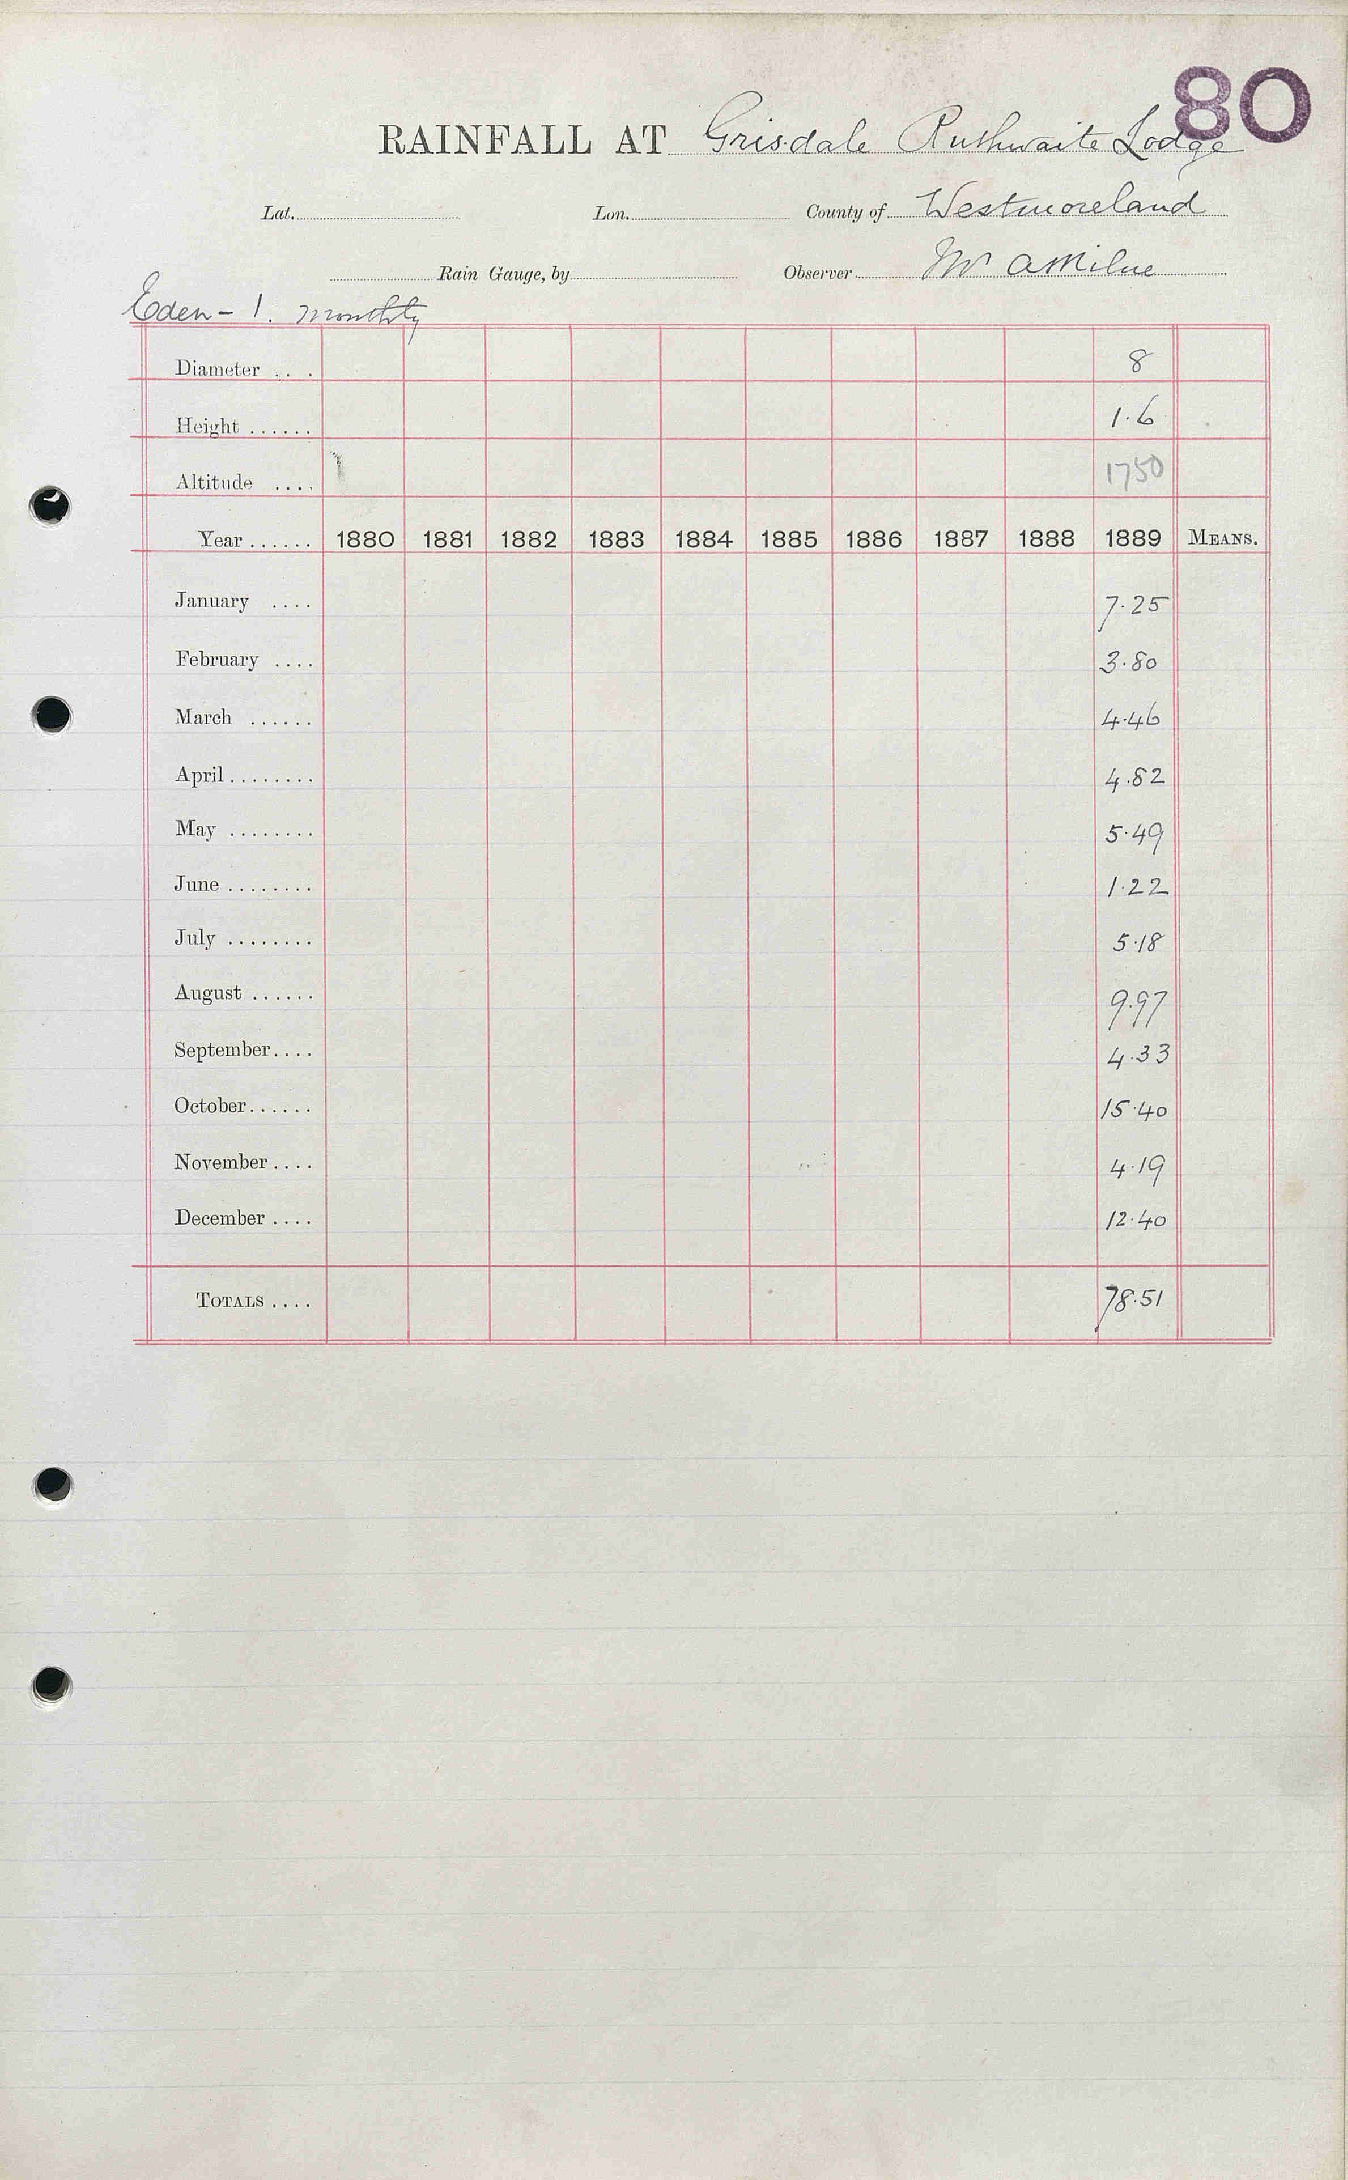 80
RAINFALL AT Grisdale Ruthwaite Lodge
Lat. Lon. County of Westmoreland
Rain Gauge, by Observer Mr A Milne
Eden - 1. Monthly
Diameter . . . 8
Height ...... 1.6
Altitude .... 1750
Year ...... 1880 1881 1882 1883 1884 1885 1886 1887 1888 1889 MEANS.
January .... 7.25
February .... 3.80
March ...... 4.46
April ........ 4.82
May ........ 5.49
June ........ 1.22
July ........ 5.18
August ...... 9.97
September.... 4.33
October...... 15.40
November.... 4.19
December .... 12.40
TOTALS .... 78.51